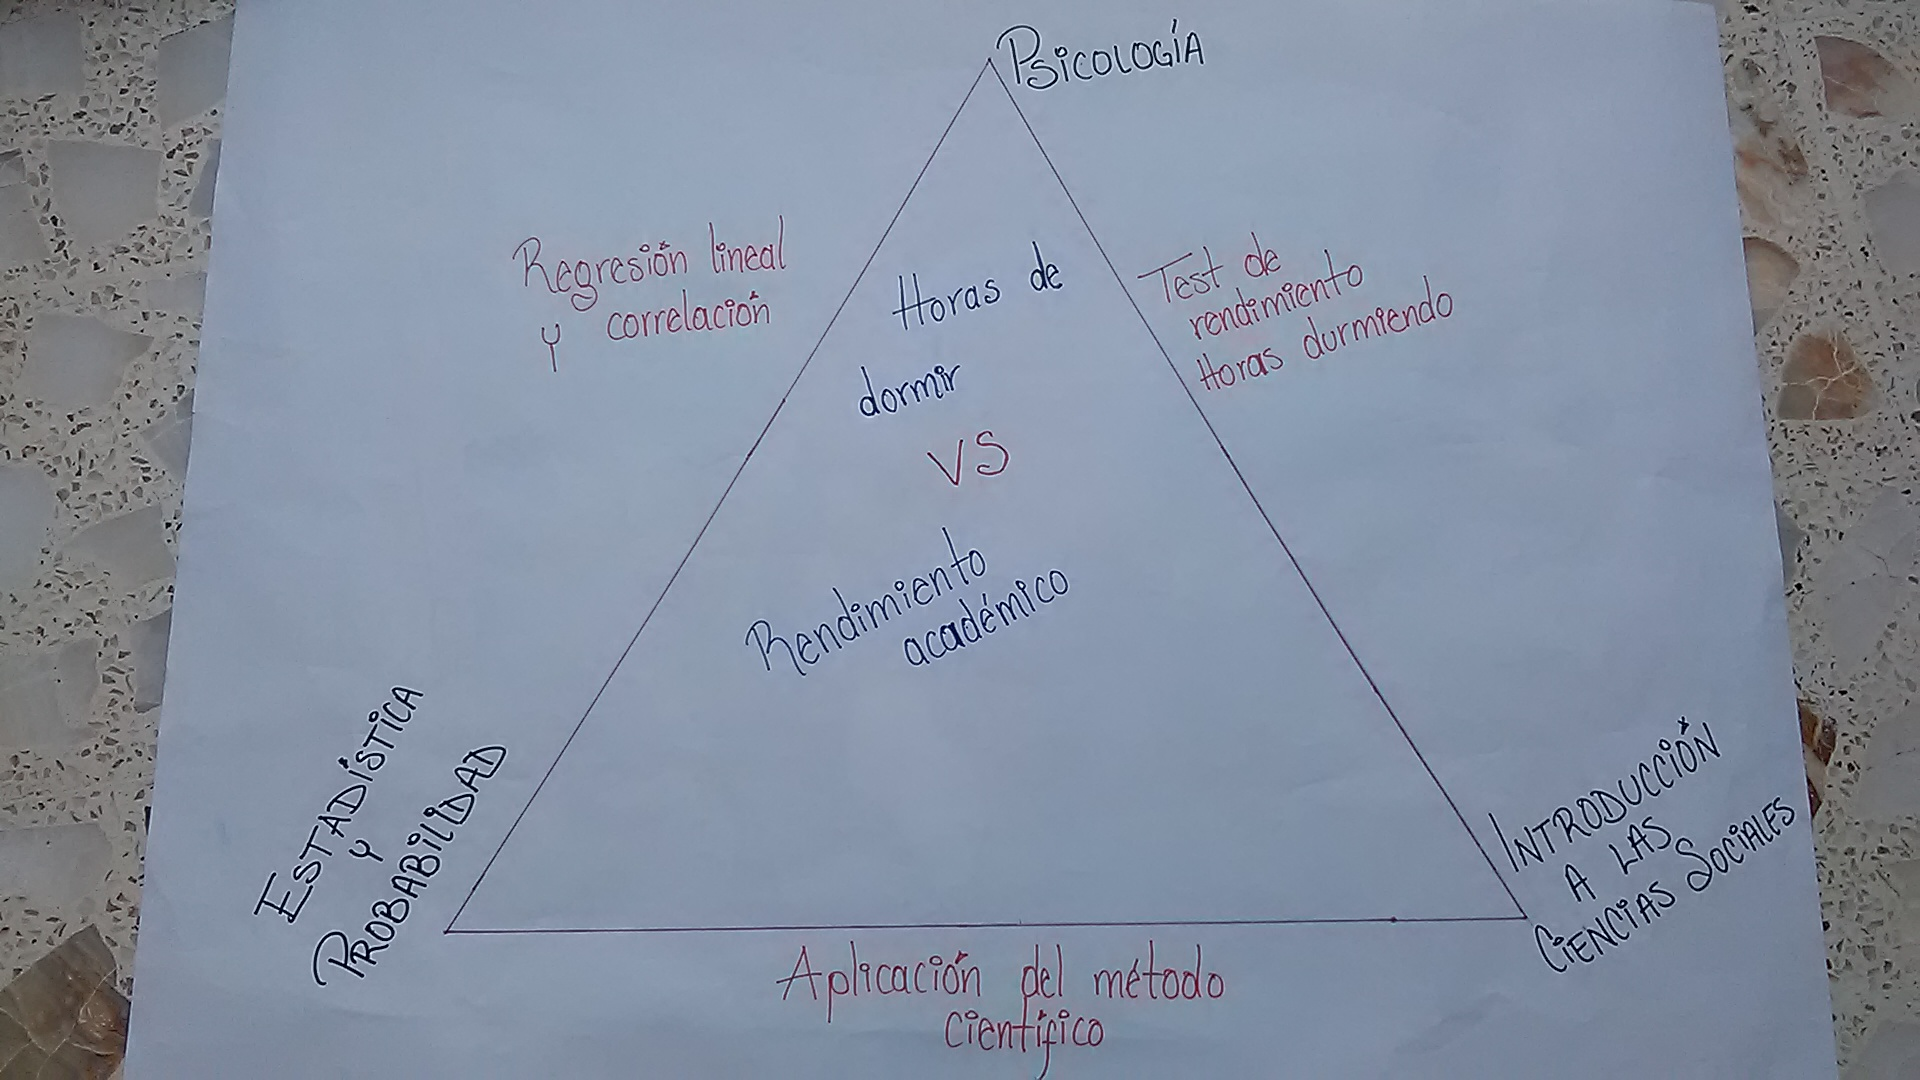 PSICOLOGÍA
Regresión lineal
y correlación
Horas de
dormir
VS
Rendimiento
académico
Test de
rendimiento
Horas durmiendo
ESTADÍSTICA
Y
PROBABILIDAD
INTRODUCCIÓN
A LAS
CIENCIAS SOCIALES
Aplicación del método
científico